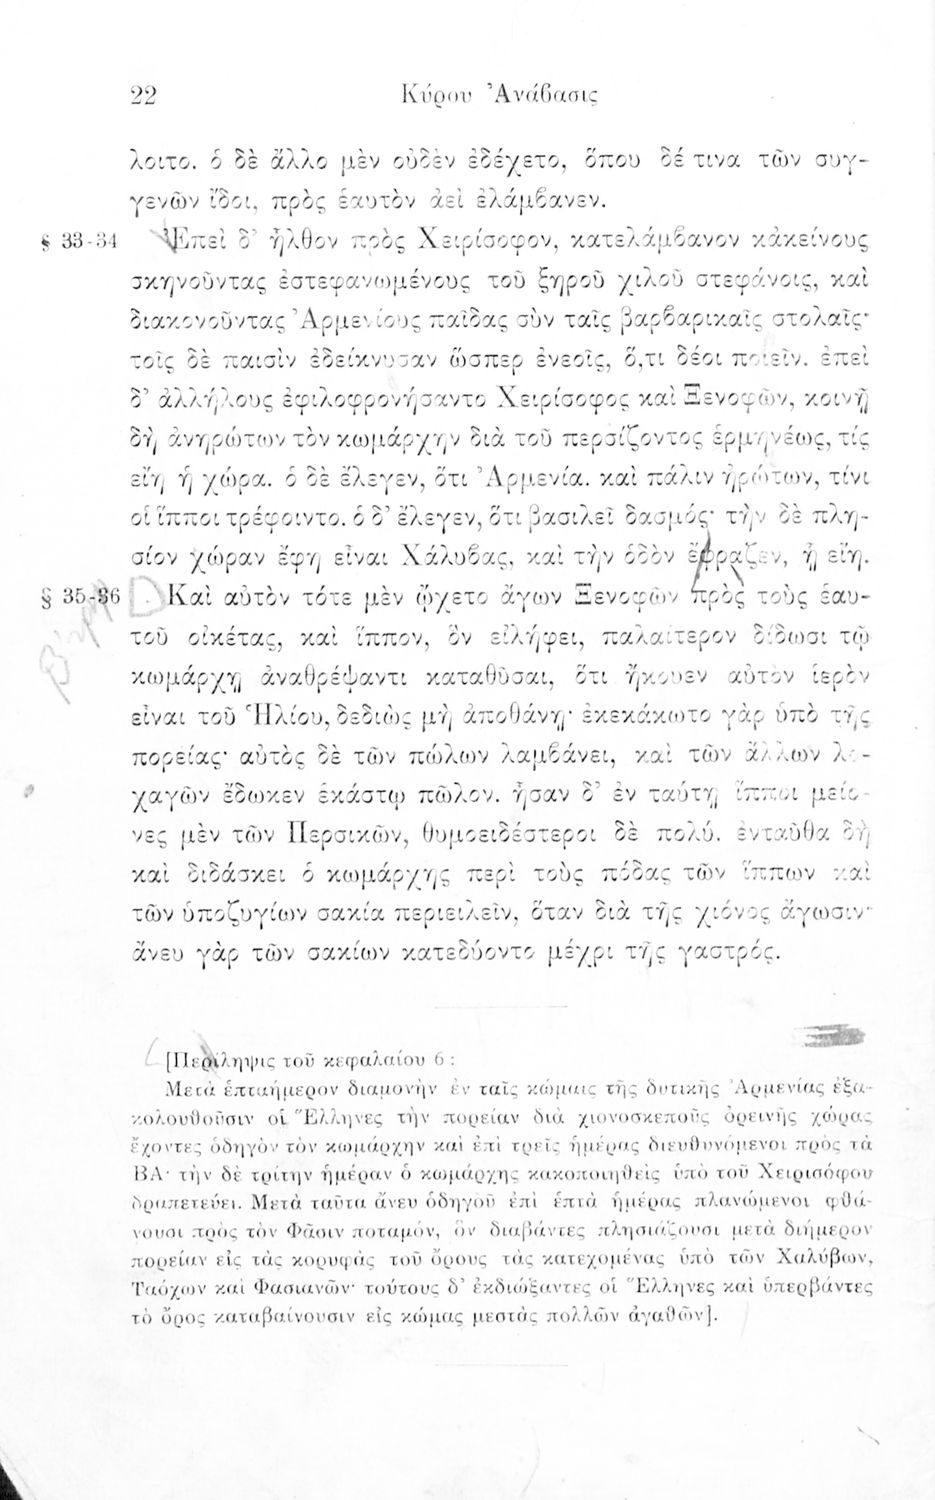 22
Κύρου Ἀνάβασις
λοιτο. ὁ δὲ ἄλλο μὲν οὐδὲν ἐδέχετο, ὅπου δέ τινα τῶν συγ-
γενῶν ἴδοι, πρὸς ἑαυτὸν ἀεὶ ἐλάμβανεν.
§ 33-34 Ἐπεὶ δ’ ἦλθον πρὸς Χειρίσοφον, κατελάμβανον κἀκείνους
σκηνοῦντας ἐστεφανωμένους τοῦ ξηροῦ χιλοῦ στεφάνοις, καὶ
διακονοῦντας Ἀρμενίους παῖδας σὺν ταῖς βαρβαρικαῖς στολαῖς·
τοῖς δὲ παισὶν ἐδείκνυσαν ὥσπερ ἐνεοῖς, ὅ,τι δέοι ποιεῖν. ἐπεὶ
δ’ ἀλλήλους ἐφιλοφρονήσαντο Χειρίσοφος καὶ Ξενοφῶν, κοινῇ
δὴ ἀνηρώτων τὸν κωμάρχην διὰ τοῦ περσίζοντος ἑρμηνέως, τίς
εἴη ἡ χώρα. ὁ δὲ ἔλεγεν, ὅτι Ἀρμενία. καὶ πάλιν ἠρώτων, τίνι
οἱ ἵπποι τρέφοιντο. ὁ δ’ ἔλεγεν, ὅτι βασιλεῖ δασμός· τὴν δὲ πλη-
σίον χώραν ἔφη εἶναι Χάλυβας, καὶ τὴν ὁδὸν ἔφραζεν, ᾗ εἴη.
§ 35-36 Καὶ αὐτὸν τότε μὲν ᾤχετο ἄγων Ξενοφῶν πρὸς τοὺς ἑαυ-
τοῦ οἰκέτας, καὶ ἵππον, ὃν εἰλήφει, παλαίτερον δίδωσι τῷ
κωμάρχῃ ἀναθρέψαντι καταθῦσαι, ὅτι ἤκουεν αὐτὸν ἱερὸν
εἶναι τοῦ Ἡλίου, δεδιὼς μὴ ἀποθάνῃ· ἐκεκάκωτο γὰρ ὑπὸ τῆς
πορείας· αὐτὸς δὲ τῶν πώλων λαμβάνει, καὶ τῶν ἄλλων λο-
χαγῶν ἔδωκεν ἑκάστῳ πῶλον. ἦσαν δ’ ἐν ταύτῃ ἵπποι μείο-
νες μὲν τῶν Περσικῶν, θυμοειδέστεροι δὲ πολύ. ἐνταῦθα δὴ
καὶ διδάσκει ὁ κωμάρχης περὶ τοὺς πόδας τῶν ἵππων καὶ
τῶν ὑποζυγίων σακία περιειλεῖν, ὅταν διὰ τῆς χιόνος ἄγωσιν·
ἄνευ γὰρ τῶν σακίων κατεδύοντο μέχρι τῆς γαστρός.
[Περίληψις τοῦ κεφαλαίου 6 :
Μετὰ ἑπταήμερον διαμονὴν ἐν ταῖς κώμαις τῆς δυτικῆς Ἀρμενίας ἐξα-
κολουθοῦσιν οἱ Ἕλληνες τὴν πορείαν διὰ χιονοσκεποῦς ὀρεινῆς χώρας
ἔχοντες ὁδηγὸν τὸν κωμάρχην καὶ ἐπὶ τρεῖς ἡμέρας διευθυνόμενοι πρὸς τὰ
ΒΑ· τὴν δὲ τρίτην ἡμέραν ὁ κωμάρχης κακοποιηθεὶς ὑπὸ τοῦ Χειρισόφου
δραπετεύει. Μετὰ ταῦτα ἄνευ ὁδηγοῦ ἐπὶ ἑπτὰ ἡμέρας πλανώμενοι φθά-
νουσι πρὸς τὸν Φᾶσιν ποταμόν, ὃν διαβάντες πλησιάζουσι μετὰ διήμερον
πορείαν εἰς τὰς κορυφὰς τοῦ ὄρους τὰς κατεχομένας ὑπὸ τῶν Χαλύβων,
Ταόχων καὶ Φασιανῶν· τούτους δ’ ἐκδιώξαντες οἱ Ἕλληνες καὶ ὑπερβάντες
τὸ ὄρος καταβαίνουσιν εἰς κώμας μεστὰς πολλῶν ἀγαθῶν].